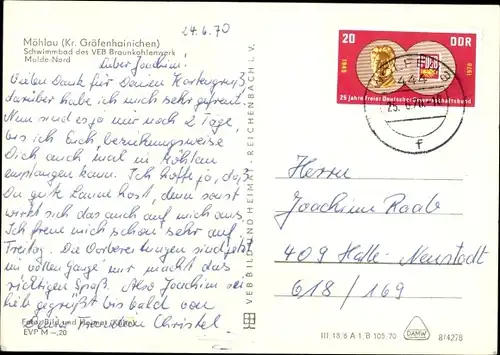 24.6.70
Möhlau (Kr. Gräfenhainichen)
Schwimmbad des VEB Braunkohlenwerk
Mulde-Nord
Lieber Joachim!
Vielen Dank für Deinen Kartengruß
darüber habe ich mich sehr gefreut.
Nun sind es ja nur noch 2 Tage,
bis ich Euch, beziehungsweise
Dich auch mal in Möhlau
empfangen kann. Ich hoffe ja, daß
Du gute Laune hast, denn sonst
wirkt sich das auch auf mich aus.
Ich freue mich schon sehr auf
Freitag. Die Vorbereitungen sind jetzt
im vollen Gange mir macht das
richtigen Spaß. Also Joachim sei
lieb gegrüßt bis bald von
Deiner Freundin Christel
Foto: Bild und Heimat
EVP M –,20
VEB BILD UND HEIMAT · REICHENBACH I. V.
20 DDR
1945 1970
FDGB
25 Jahre Freier Deutscher Gewerkschaftsbund
25. 6.70
f
Herrn
Joachim Raab
409 Halle-Neustadt
618 / 169
III 18/6 A 1/B 105/70
DAMW
8/4278